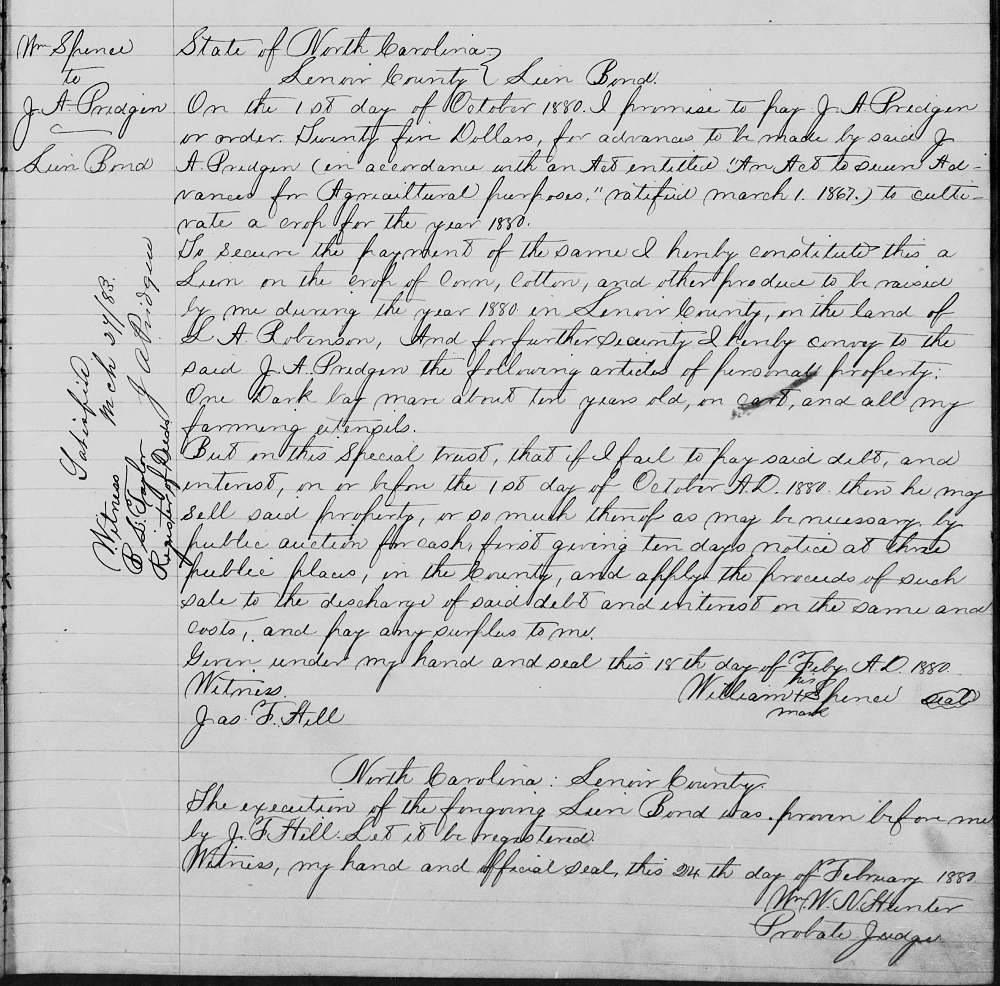 Wm Spence
to
J. A. Pridgen
Lien Bond
State of North Carolina
Lenoir County } Lien Bond.
On the 1st day of October 1880. I promise to pay J. A Pridgen
or order. Twenty five Dollars, for advances to be made by said J.
A. Pridgen (in accordance with an Act entitled "An Act to secure Ad-
vances for Agricultural purposes," ratified march 1. 1867.) to culti-
vate a crop for the year 1880.
To secure the payment of the same I hereby constitute this a
Lien on the crop of Corn, Cotton, and other produce to be raised
by me during the year 1880 in Lenoir County, on the land of
L A. Robinson, And for further security I hereby convey to the
said J. A. Pridgen the following articles of personal property:
One Dark bay mare about ten years old, on cart, and all my
farming utensils.
But on this Special trust, that if I fail to pay said debt, and
interest, on or before the 1st day of October A.D. 1880. then he may
sell said property, or so much thereof as may be necessary, by
public auction for cash, first giving ten days notice at three
public places, in the County, and apply the proceeds of such
sale to the discharge of said debt and interest on the same and
costs, and pay any surplus to me.
Given under my hand and seal this 18th day of Feby A.D. 1880.
Witness.
Jas. F. Hill
his
William + Spence seal
mark
Satisfied
Mch 27/83.
J A Pridgen
Witness
B. S. Taylor
Register of Deeds
North Carolina: Lenoir County.
The execution of the foregoing Lien Bond was proven before me
by J. F. Hill. Let it be registered.
Witness, my hand and official seal, this 24th day of February 1880
Wm. W. N. Hunter
Probate Judge